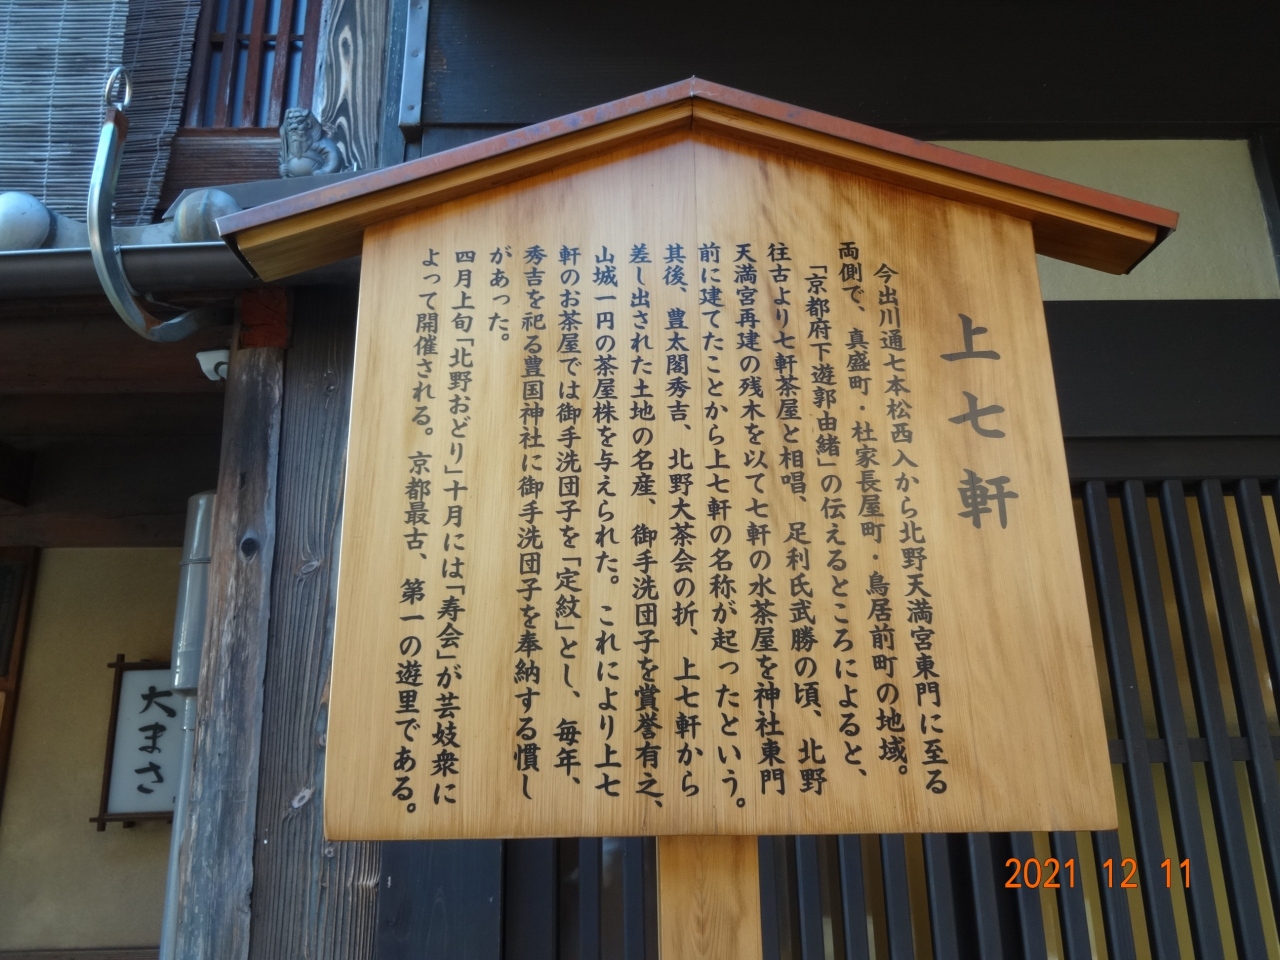 上七軒
今出川通七本松西入から北野天満宮東門に至る
両側で、真盛町・社家長屋町・鳥居前町の地域。
「京都府下遊郭由緒」の伝えるところによると、
往古より七軒茶屋と相唱、足利氏武勝の頃、北野
天満宮再建の残木を以て七軒の水茶屋を神社東門
前に建てたことから上七軒の名称が起ったという。
其後、豊太閤秀吉、北野大茶会の折、上七軒から
差し出された土地の名産、御手洗団子を賞誉有之、
山城一円の茶屋株を与えられた。これにより上七
軒のお茶屋では御手洗団子を「定紋」とし、毎年、
秀吉を祀る豊国神社に御手洗団子を奉納する慣し
があった。
四月上旬「北野おどり」十月には「寿会」が芸妓衆に
よって開催される。京都最古、第一の遊里である。
大まさ
2021 12 11